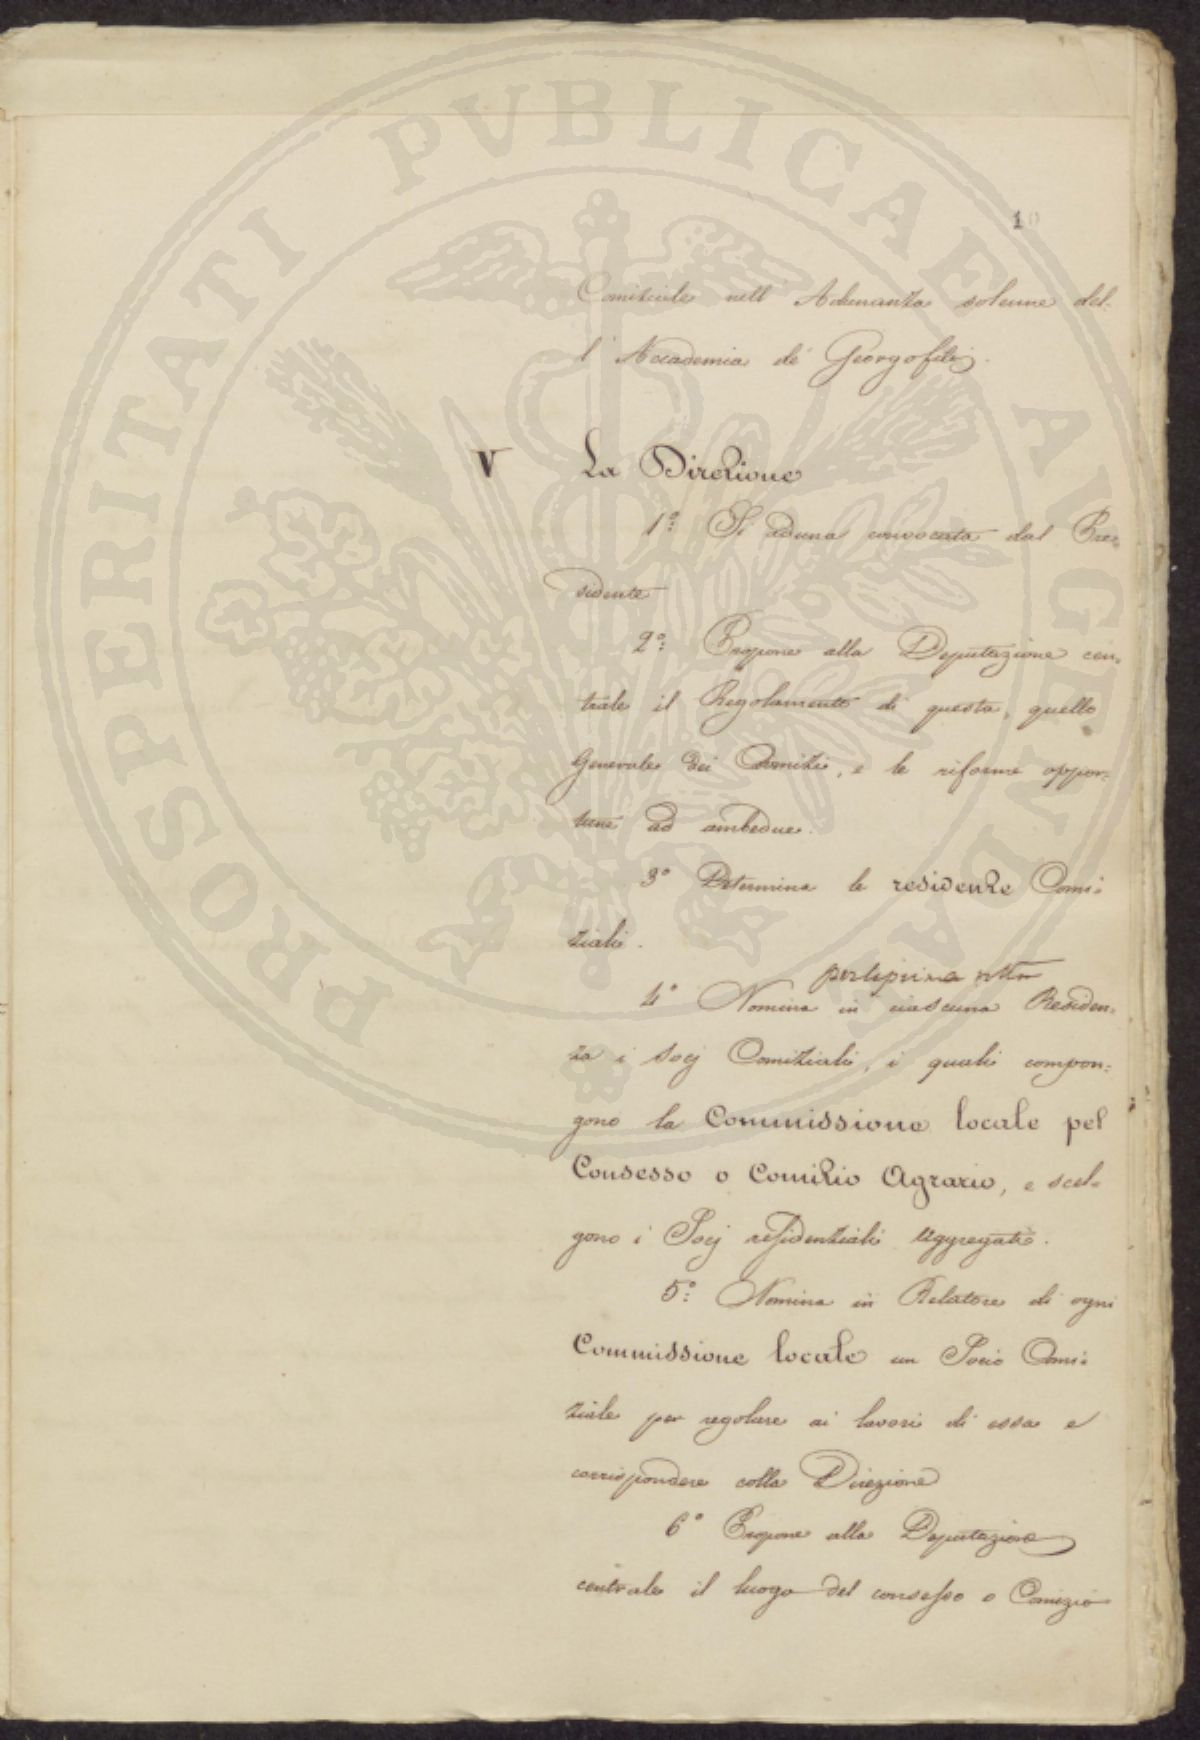 PROSPERITATI PUBLICAE AUGENDAE
10
Comiziale nell' Adunanza solenne del-
l' Accademia de' Georgofili.
V La Direzione
1º: Si aduna convocata dal Pre-
sidente
2º: Propone alla Deputazione cen-
trale il Regolamento di questa, quello
Generale dei Comizi, e le riforme oppor-
tune ad ambedue.
3º Determina le residenze Comi-
ziali.
per la prima volta
4º Nomina in ciascuna Residen-
za i Socj Comiziali, i quali compon-
gono la Commissione locale pel
Consesso o Comizio Agrario, e scel-
gono i Socj residenziali aggregati.
5º: Nomina in Relatore di ogni
Commissione locale un Socio Comi-
ziale per regolare ai lavori di essa e
corrispondere colla Direzione
6º Propone alla Deputazione
centrale il luogo del consesso o Comizio